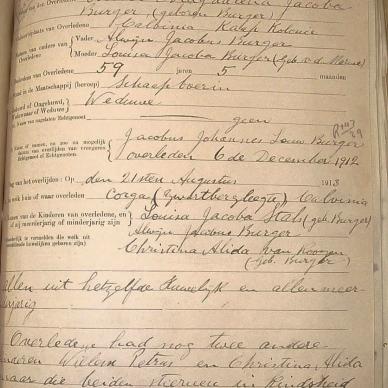 Magdalena Jacoba
Burger (geboren Burger)
plaats van Overledene Calvinia Kaap Kolonie
Namen van ouders van Overledene Vader Alwijn Jacobus Burger
Moeder Louisa Jacoba Burger (geb. v.d. Merwe)
Ouderdom van Overledene 59 jaren 5 maanden
Stand in de Maatschappij (beroep) Schaapboerin
Gehuwd of Ongehuwd, Weduwnaar of Weduwe Weduwe
geen
Jacobus Johannes Louw Burger
overleden 6 de December 1912
Dag van het overlijden: Op den 21sten Augustus 1913
In welk huis of waar overleden Corga (Zwartbergleegte) Calvinia
Namen van de Kinderen van overledene, en of zij meerderjarig of minderjarig zijn Louisa Jacoba Stals (geb. Burger)
Alwijn Jacobus Burger
Christina Alida van Rooyen
(geb. Burger)
Allen uit hetzelfde Huwelijk en allen meerderjarig
Overledene had nog twee andere
kinderen Willem Petrus en Christina Alida
maar die beiden stierven in Kindsheid